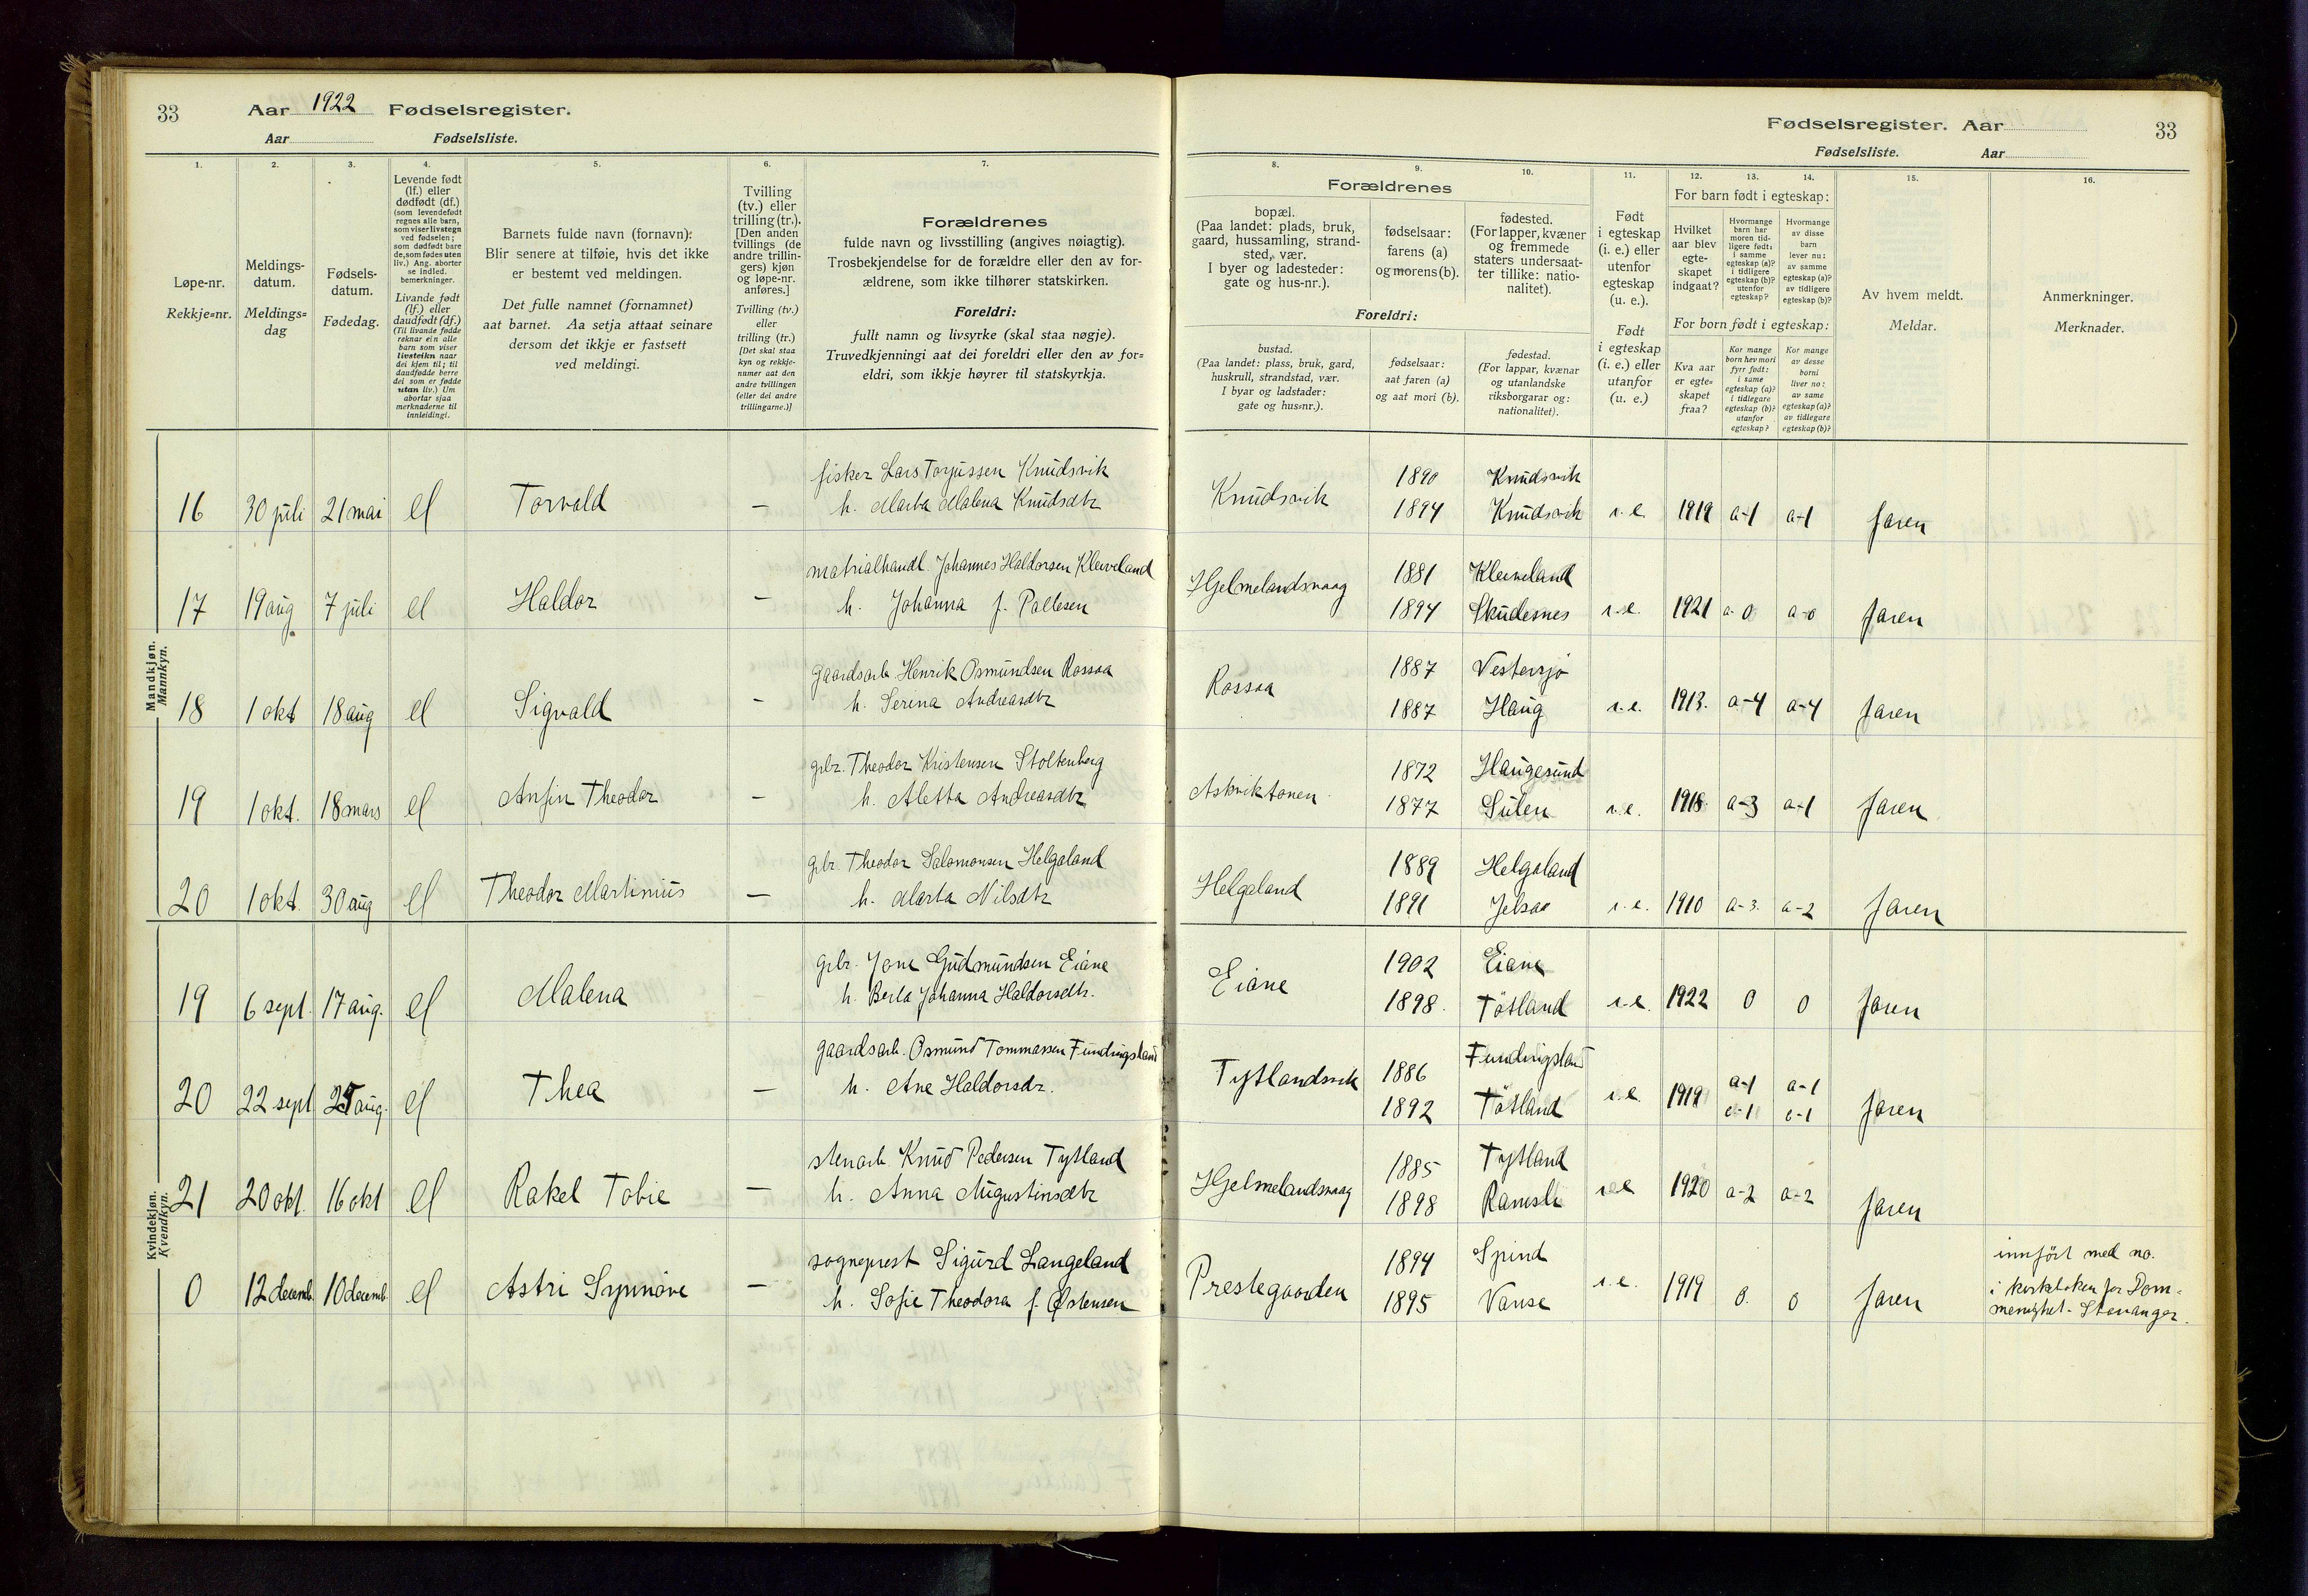 33 Aar 1922 Fødselsregister.
Aar Fødselsliste.
1. 2. 3. 4. 5. 6. 7.
Løpe-nr.
Rekkje=nr.
Meldings-
datum.
Meldings=
dag
Fødsels-
datum.
Fødedag.
Levende født
(lf.) eller
dødfødt (df.)
(som levendefødt
regnes alle barn,
som viser livstegn
ved fødselen;
som dødfødt bare
de, som fødes uten
liv.) Ang. aborter
se indled.
bemerkninger.
Livande født
(lf.) eller
daudfødt (df.)
(Til livande fødde
reknar ein alle
barn som viser
livsteikn naar
dei kjem til; til
daudfødde berre
dei som er fødde
utan liv.) Um
abortar sjaa
merknaderne til
innleidingi.
Barnets fulde navn (fornavn):
Blir senere at tilføie, hvis det ikke
er bestemt ved meldingen.
Det fulle namnet (fornamnet)
aat barnet. Aa setja attaat seinare
dersom det ikkje er fastsett
ved meldingi.
Tvilling
(tv.) eller
trilling (tr.).
[Den anden
tvillings (de
andre trillin-
gers) kjøn
og løpe-nr.
anføres.]
Tvilling (tv.)
eller
trilling (tr.)
[Det skal staa
kyn og rekkje-
numer aat den
andre tvillingen
(eller dei andre
trillingarne.)]
Forældrenes
fulde navn og livsstilling (angives nøiagtig).
Trosbekjendelse for de forældre eller den av for-
ældrene, som ikke tilhører statskirken.
Foreldri:
fullt namn og livsyrke (skal staa nøgje).
Truvedkjenningi aat dei foreldri eller den av for=
eldri, som ikkje høyrer til statskyrkja.
Mandkjøn.
Mannkyn.
fisker Lars Torjussen Knudsvik
16 30 juli 21 mai lf Torvald — h. Marta Malena Knudsdtr
matrialhandl. Johannes Haldorsen Kleveland
17 19 aug 7 juli lf Haldor — h. Johanna f. Pallesen
gaardsarb. Henrik Osmundsen Rossaa
18 1 okt 18 aug lf Sigvald — h. Serina Andreasdtr
grbr. Theodor Kristensen Stoltenberg
19 1 okt. 18 mars lf Anfin Theodor — h. Aletta Andreasdtr
grbr. Theodor Salomonsen Helgaland
20 1 okt. 30 aug lf Theodor Martinius — h. Marta Nilsdtr
Kvindekjøn.
Kvendkyn.
grbr. Jone Gudmundsen Eiane
19 6 sept. 17 aug. lf Malena h. Berta Johanna Haldorsdtr.
gaardsarb. Osmund Tommassen Fundingsland
20 22 sept 25 aug. lf Thea — h. Ane Haldorsdr.
stenarb. Knud Pedersen Tytland
21 20 okt. 16 okt lf Rakel Tobie — h. Anna Augustinsdtr
sogneprest Sigurd Langeland
0 12 decemb. 10 decemb. lf Astri Synnöve — h. Sofie Theodora f. Østensen
Fødselsregister. Aar 33
Fødselsliste. Aar
8. 9. 10. 11. 12. 13. 14. 15. 16.
Forældrenes
bopæl.
(Paa landet: plads, bruk,
gaard, hussamling, strand-
sted, vær.
I byer og ladesteder:
gate og hus-nr.).
fødselsaar:
farens (a)
og morens (b).
fødested.
(For lapper, kvæner
og fremmede
staters undersaat-
ter tillike: natio-
nalitet).
Foreldri:
bustad.
(Paa landet: plass, bruk, gard,
huskrull, strandstad, vær.
I byar og ladstader:
gate og hus=nr.).
fødselsaar:
aat faren (a)
og aat mori (b).
fødestad.
(For lappar, kvænar
og utanlandske
riksborgarar og:
nationalitet).
Født
i egteskap
(i. e.) eller
utenfor
egteskap
(u. e.).
Født
i egteskap
(i. e.) eller
utanfor
(u. e.)
For barn født i egteskap:
Hvilket
aar blev
egte-
skapet
indgaat?
Hvormange
barn har
moren tid-
ligere født:
i samme
egteskap (a)?
i tidligere
egteskap (b)?
utenfor
egteskap?
Hvormange
av disse
barn
lever nu:
av samme
egteskap (a)?
av tidligere
egteskap (b)?
For born født i egteskap:
Kva aar
er egte=
skapet
fraa?
Kor mange
born hev mori
fyrr født:
i same
egteskap (a)?
i tidlegare
egteskap (b)?
utanfor
egteskap?
Kor mange
av desse
borni
liver no:
av same
egteskap (a)?
av tidlegare
egteskap (b)?
Av hvem meldt.
Meldar.
Anmerkninger.
Merknader.
1890 Knudsvik
Knudsvik 1894 Knudsvik i. e. 1919 a-1 a-1 faren
1881 Kleveland
Hjelmelandsvaag 1894 Skudesnes i. e. 1921 a-0 a-0 faren
1887 Vestersjø
Rossaa 1887 Haug i. e. 1913. a-4 a-4 faren
1872 Haugesund
Askviktonen 1877 Sulen i. e. 1918 a-3 a-1 faren
1889 Helgaland
Helgaland 1891 Jelsaa i. e. 1910 a-3. a-2 faren
1902 Eiane
Eiane 1898. Tötland i. e. 1922 0 0 faren
1886 Fundingsland a-1 a-1
Tytlandsvik 1892 Tötland i. e. 1919 c-1 c-1 faren
1885 Tytland
Hjelmelandsvaag 1898 Ramsli i. e. 1920 a-2 a-2 faren
1894 Spind
Prestegaarden 1895 Vanse i. e. 1919 0. 0 faren
innfört med no.
i kirkeboken for Dom-
menighet - Stavanger.